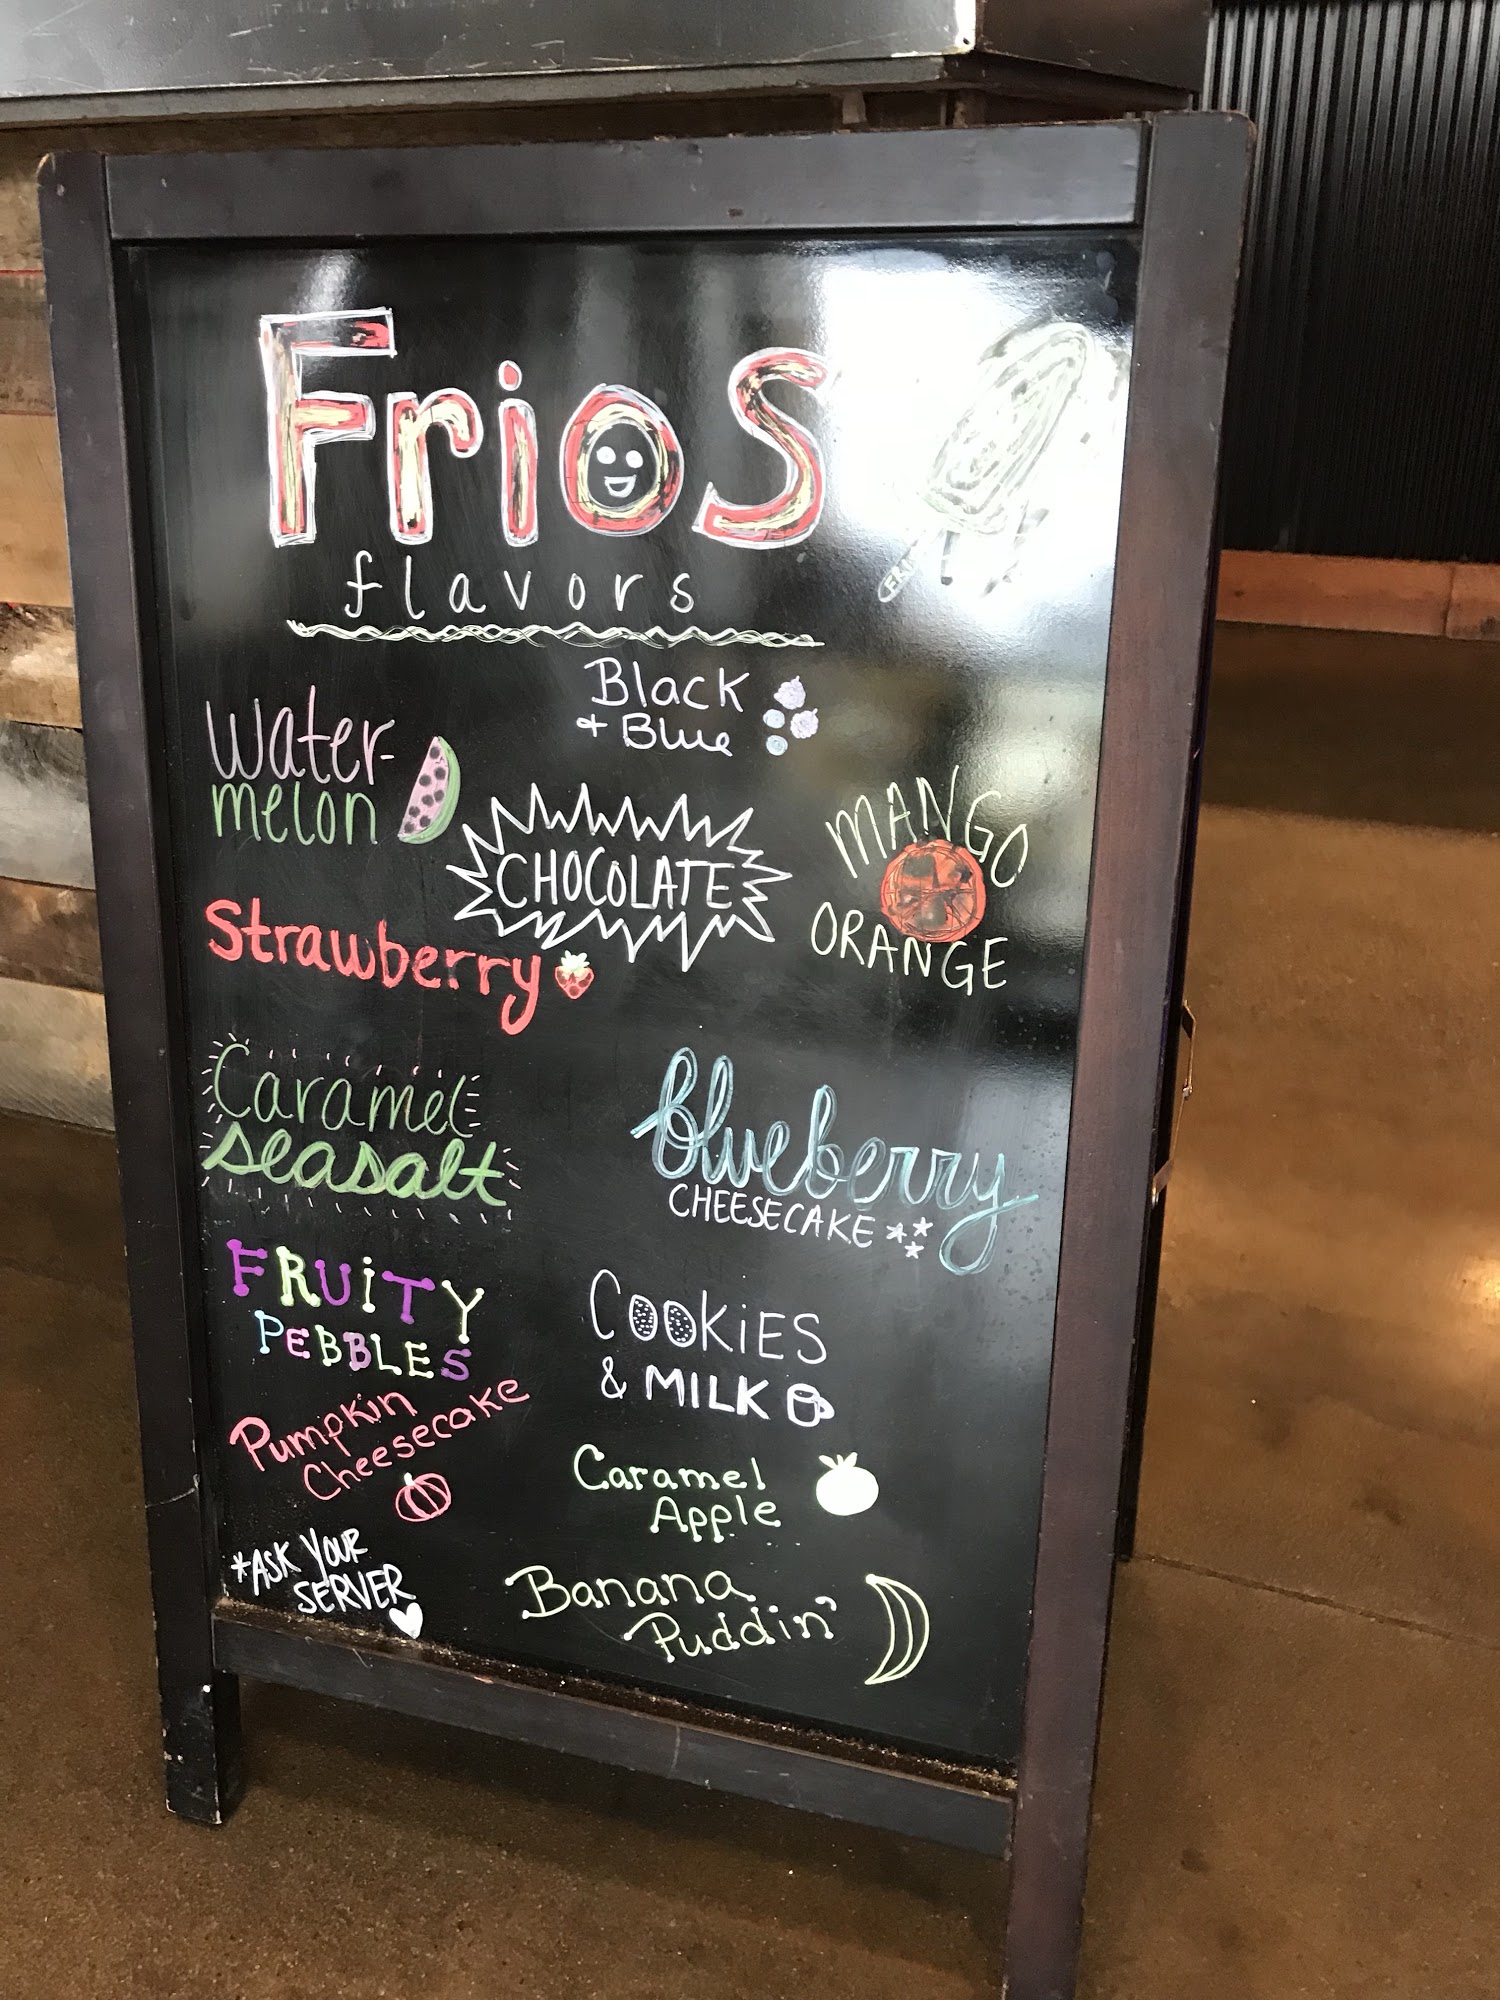 Frios
flavors
Black
+ Blue
Water-
melon
CHOCOLATE
MANGO
ORANGE
Strawberry
Caramel
seasalt
blueberry
CHEESECAKE **
*
FRUiTY
PEBBLES
COOKiES
& MILK
Pumpkin
Cheesecake
Caramel
Apple
*ASK YOUR
SERVER
Banana
Puddin'